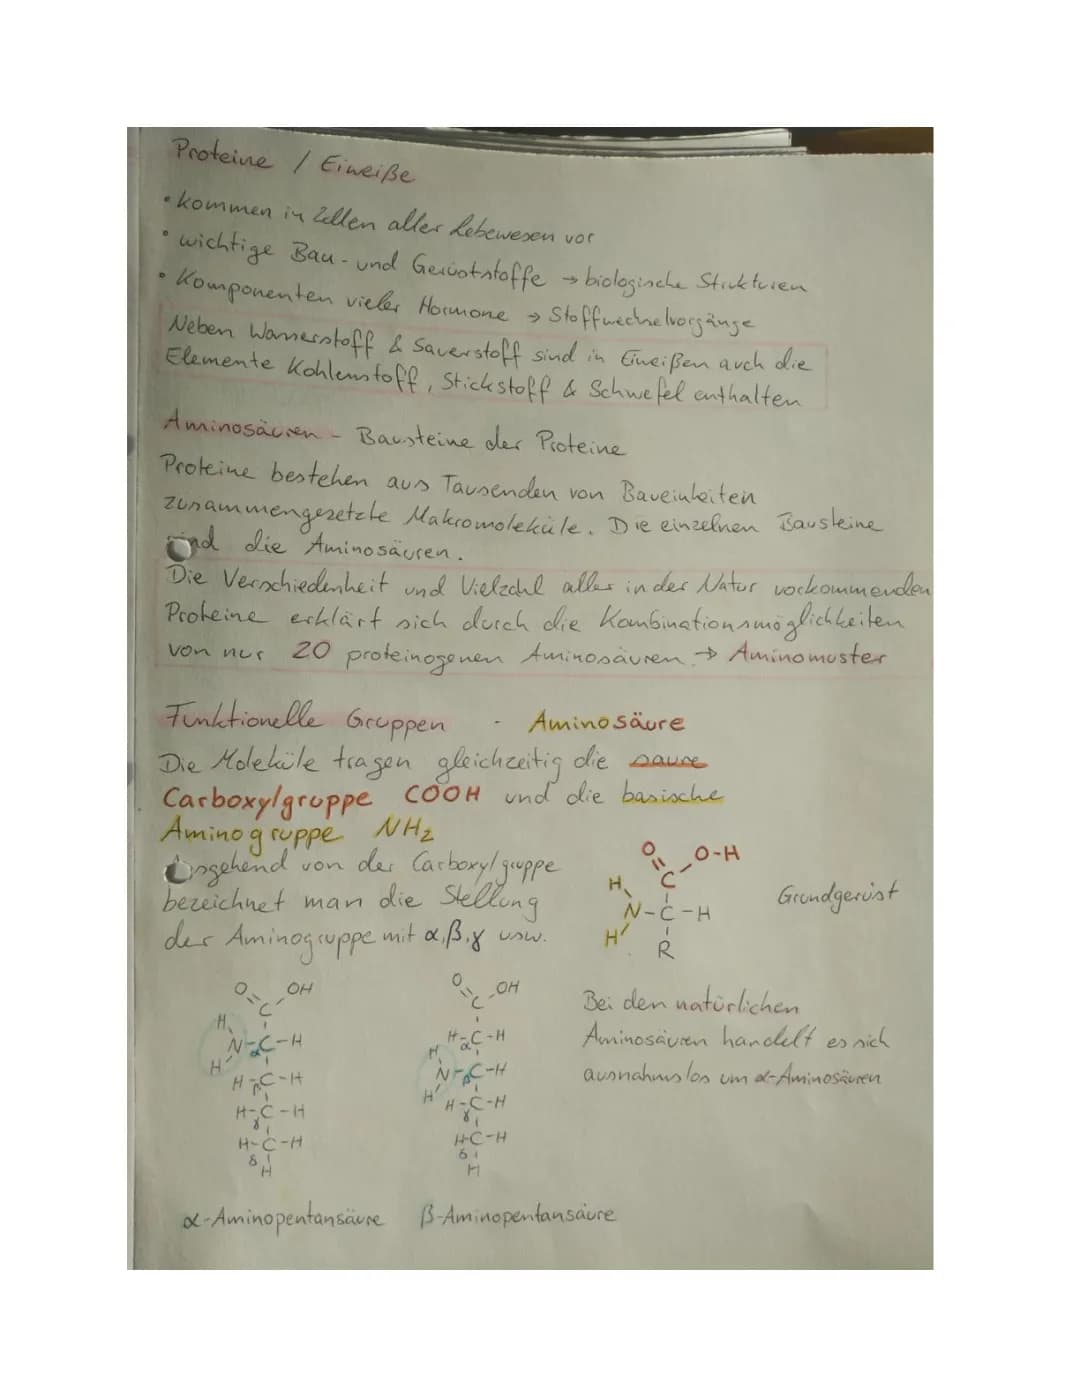 Proteine / Eiweiße
• kommen in Zellen aller Lebewesen vor
• wichtige Bau- und Gerüststoffe → biologische Strukturen
• Komponenten vieler Hormone → Stoffwechselvorgänge
Neben Wasserstoff & Sauerstoff sind in Eiweißen auch die
Elemente Kohlenstoff, Stickstoff & Schwefel enthalten
Aminosäuren - Bausteine der Proteine
Proteine bestehen aus Tausenden von Baueinheiten
zusammengesetzte Makromoleküle. Die einzelnen Bausteine
sind die Aminosäuren.
Die Verschiedenheit und Vielzahl aller in der Natur vorkommenden
Proteine erklärt sich durch die Kombinationsmöglichkeiten
von nur 20 proteinogenen Aminosäuren → Aminomuster
Funktionelle Gruppen - Aminosäure
Die Moleküle tragen gleichzeitig die saure
Carboxylgruppe COOH und die basische
Aminogruppe NH₂
Ausgehend von der Carboxylgruppe
bezeichnet man die Stellung
der Aminogruppe mit α,β,γ usw.
O O-H
H C
N-C-H
H R
Grundgerüst
O OH
C
H
N-C-H
H α
H-C-H
β
H-C-H
γ
H-C-H
δ H
O OH
C
H-C-H
α
H
N-C-H
H β
H-C-H
γ
H-C-H
δ
H
Bei den natürlichen
Aminosäuren handelt es sich
ausnahmslos um α-Aminosäuren
α-Aminopentansäure
β-Aminopentansäure